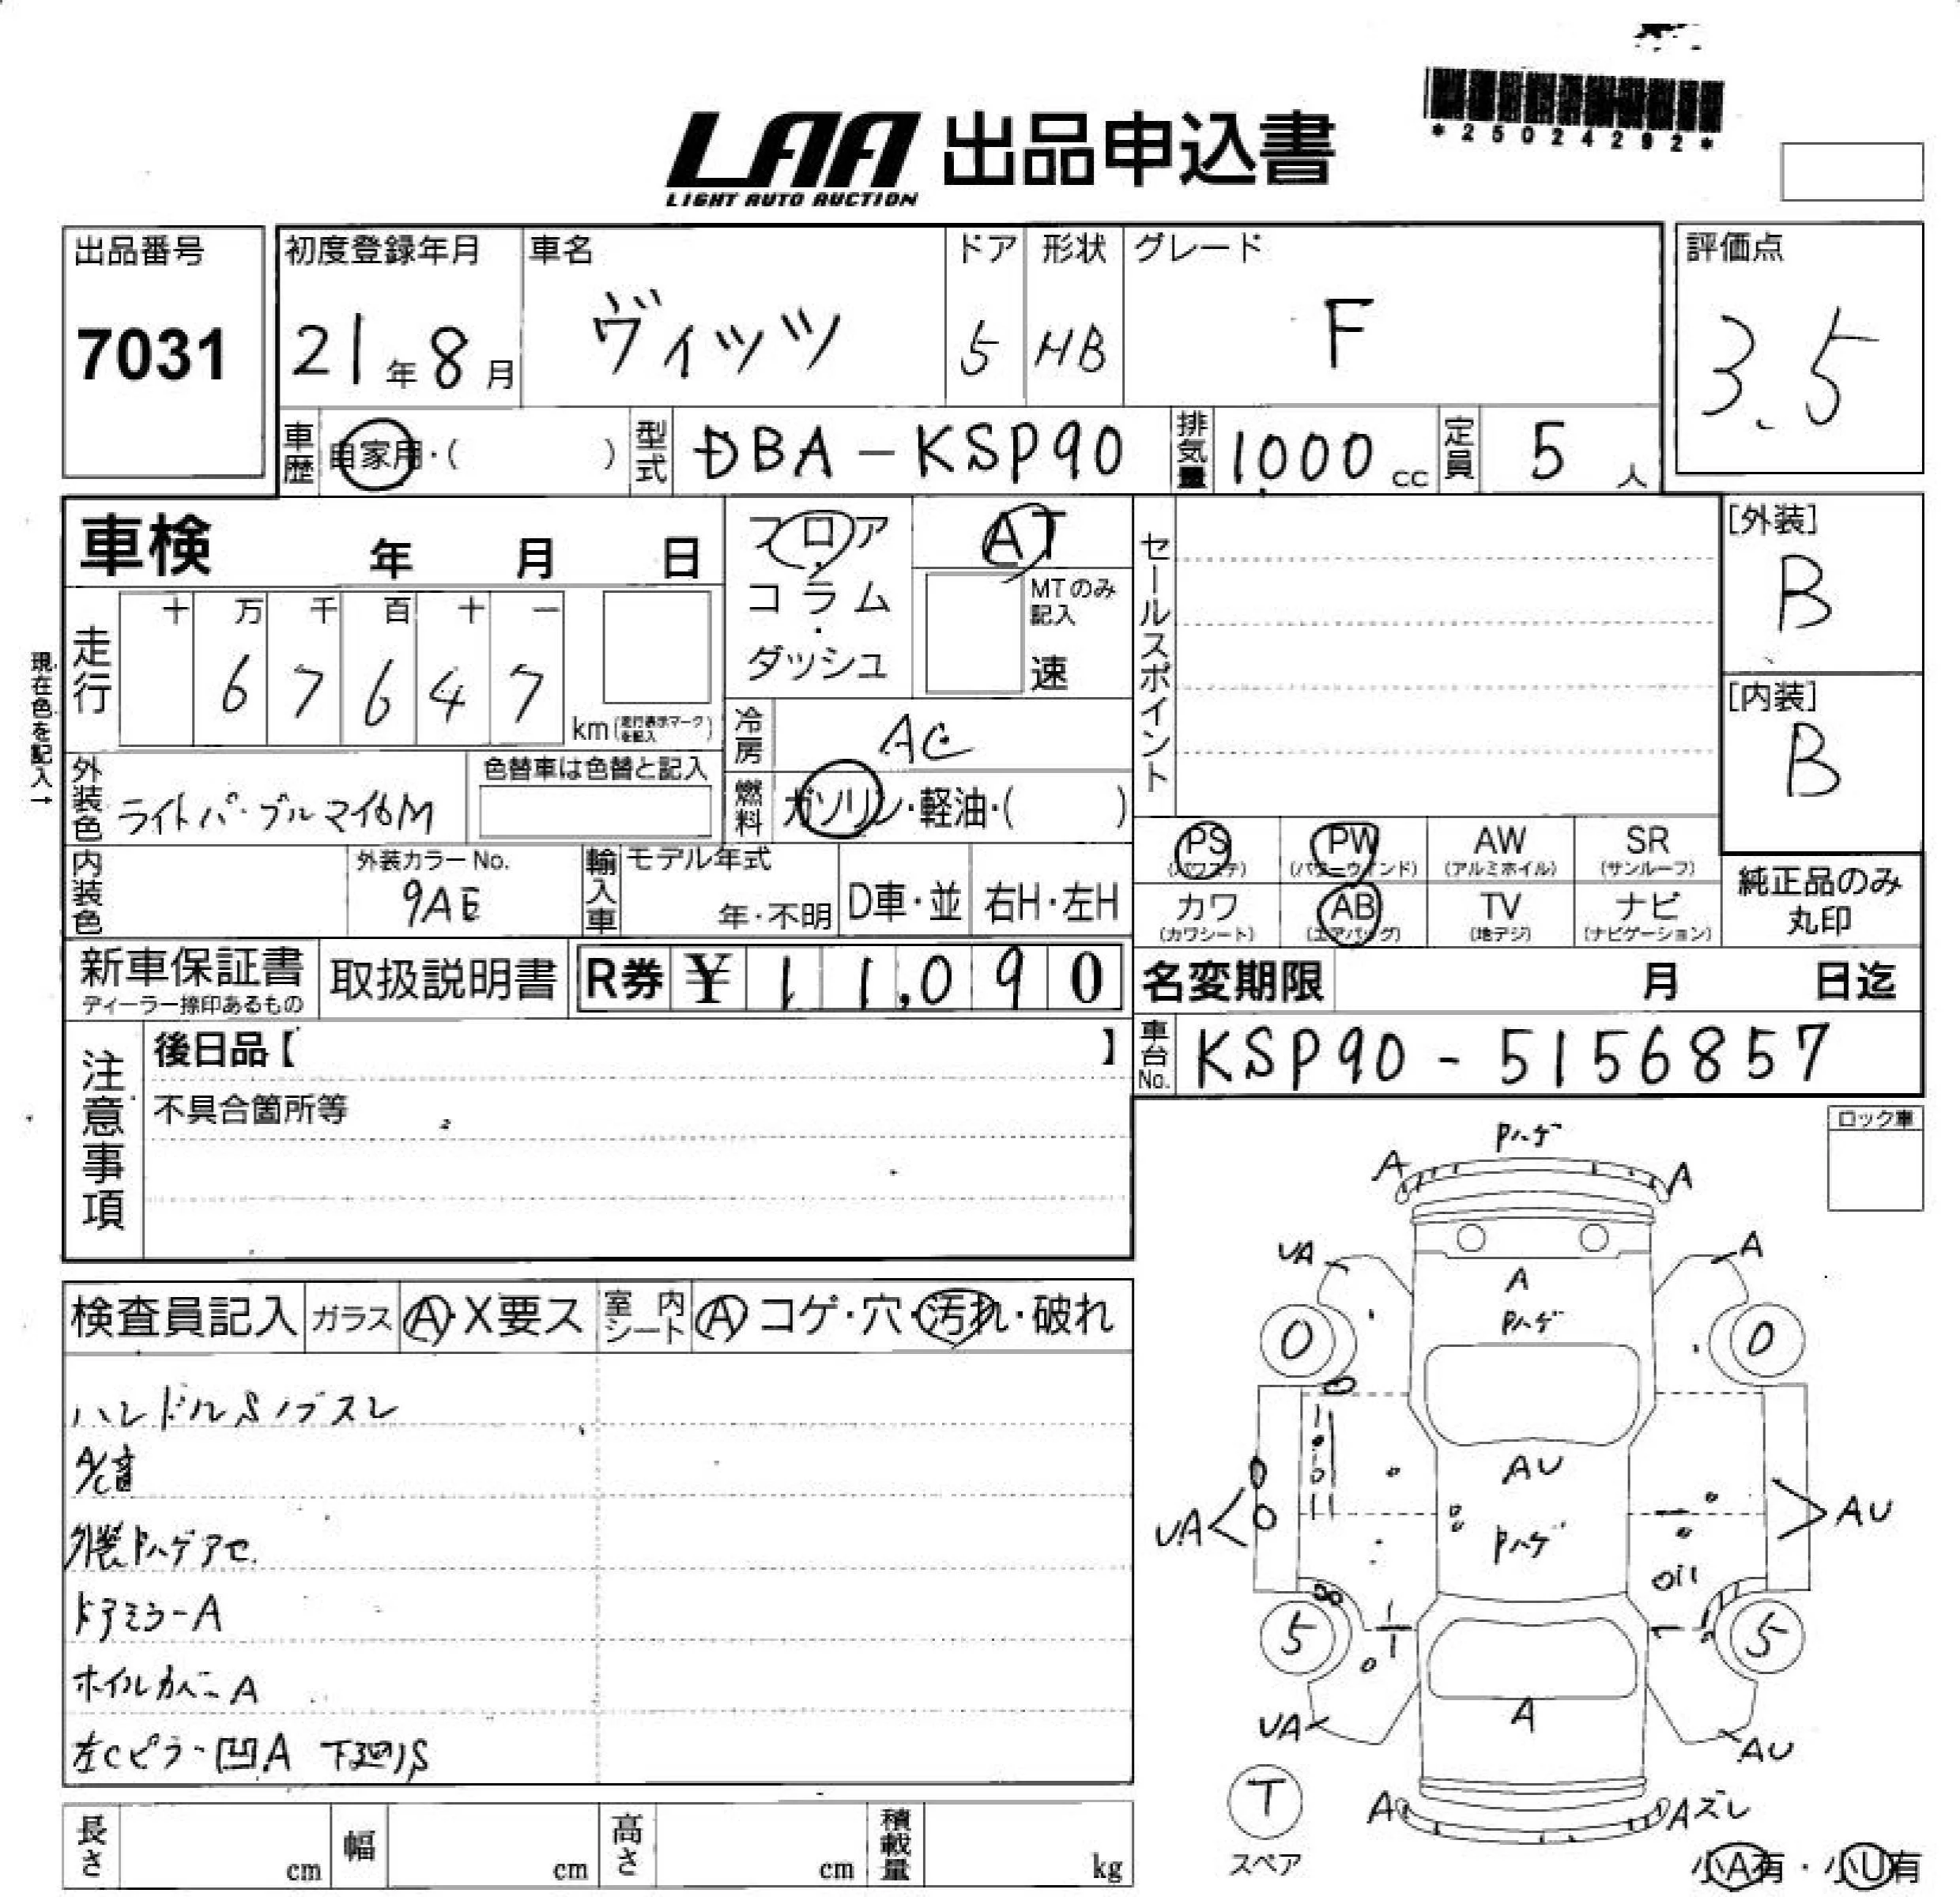 *25024292*
LAA 出品申込書
LIGHT AUTO AUCTION
出品番号
7031
初度登録年月
21年8月
車名
ヴィッツ
ドア
5
形状
HB
グレード
F
評価点
3.5
車歴
自家用・( )
型式
DBA-KSP90
排気量
1,000 cc
定員
5 人
車検 年 月 日
フロア
・
コラム
・
ダッシュ
AT
MTのみ記入
速
セールスポイント
[外装]
B
[内装]
B
現在色を記入→
走行
十 万 千 百 十 一
6 7 6 4 7
km(走行表示マークを記入)
冷房
AC
燃料
ガソリン・軽油・( )
外装色
色替車は色替と記入
内装色
外装カラーNo.
9AE
輸入車
モデル年式
年・不明
D車・並
右H・左H
PS
(パワステ)
PW
(パワーウインド)
AW
(アルミホイル)
SR
(サンルーフ)
カワ
(カワシート)
AB
(エアバッグ)
TV
(地デジ)
ナビ
(ナビゲーション)
純正品のみ
丸印
新車保証書
ディーラー捺印あるもの
取扱説明書
R券 ¥11,090
名変期限 月 日迄
注意事項
後日品【 】
不具合箇所等
車台No.
KSP90-5156857
ロック車
検査員記入
ガラス
A・X要ス
室内シート
A コゲ・穴・汚れ・破れ
ハンドルS ノブスレ
A/C音
外装Pハゲアセ
ドアミラーA
ホイルカバーA
左Cピラー凹A 下廻りS
Pハゲ
A
A
UA
A
A
Pハゲ
0
0
AU
UA
AU
Pハゲ
5
5
UA
A
AU
T
スペア
A
Aズレ
小A有・小U有
長さ
cm
幅
cm
高さ
cm
積載量
kg